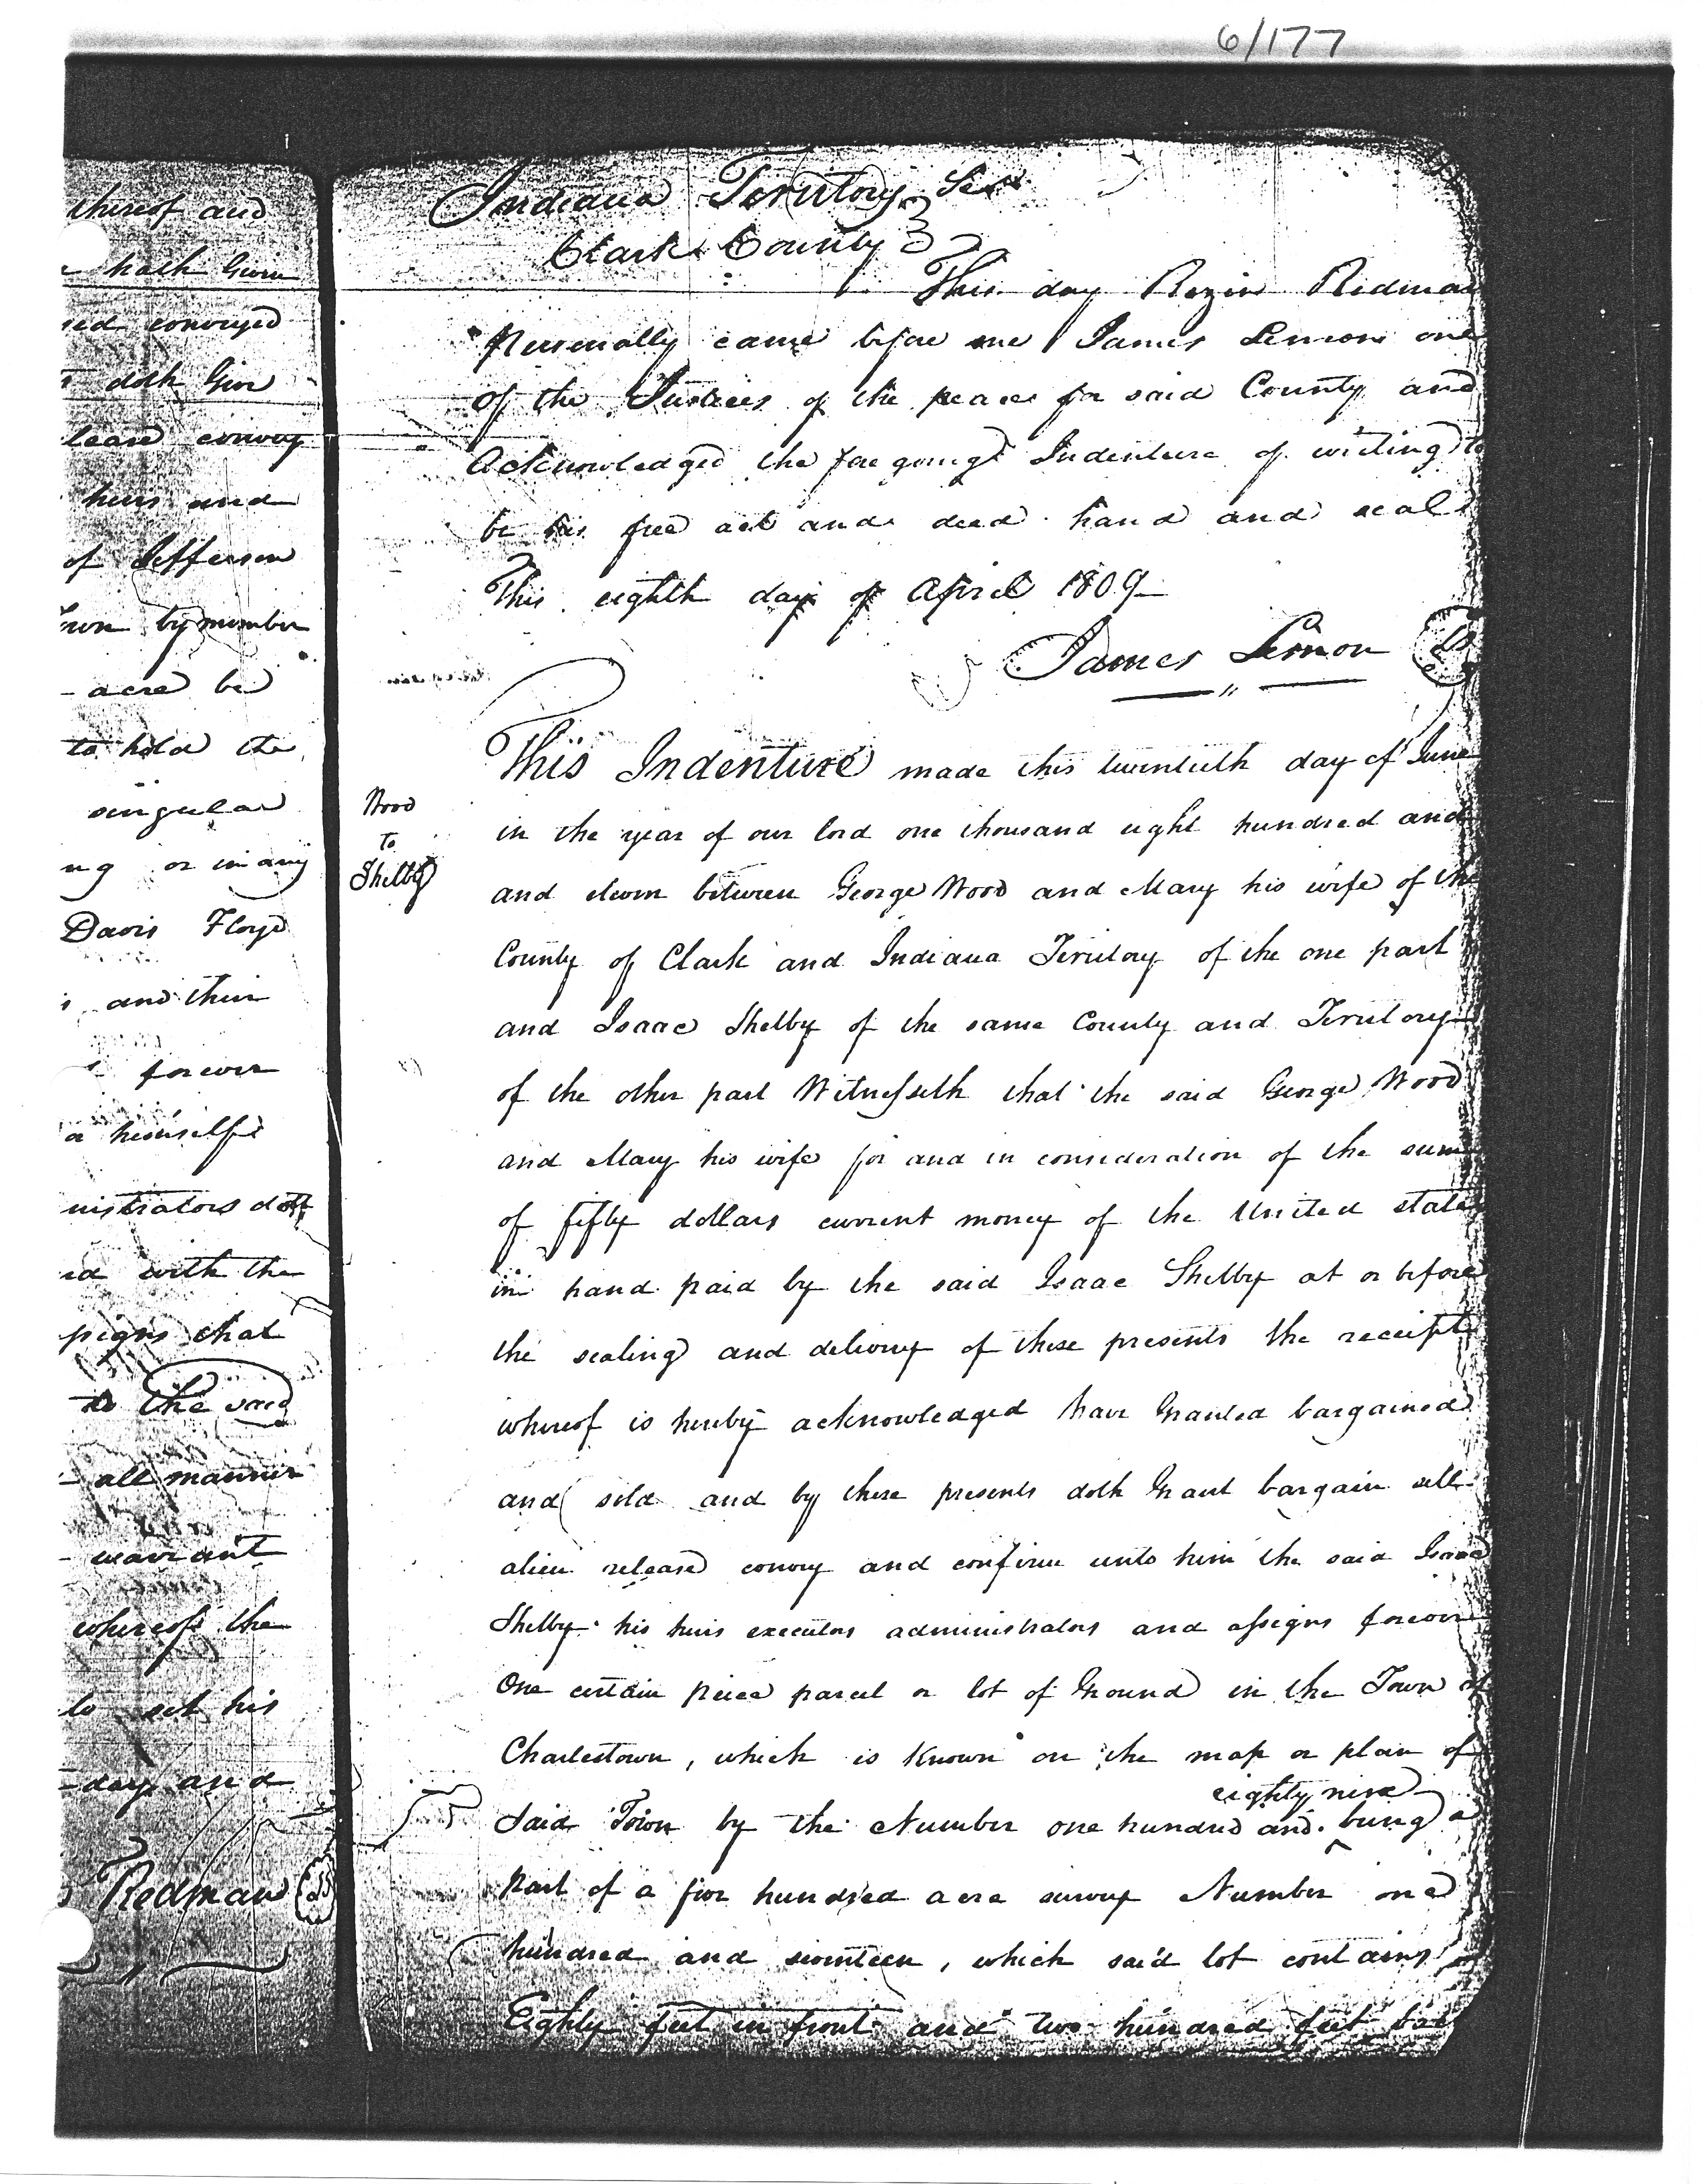 6/177
thereof and
hath Given
sed conveyed
doth Give
lease convey
heirs and
of Jefferson
by number
acre be
to hold the
singular
ng or in any
Davis Floyd
and their
forever
himself
nistrators doth
id with the
signs that
to the said
all manner
warrant
whereof the
to set his
day and
Redman
Indiana Territory Sct
Clark County
This day Rezin Redman
Personally came before me James Lemon one
of the Justices of the peace for said County and
Acknowledged the foregoing Indenture of writing to
be his free act and deed hand and seal
This eighth day of April 1809
James Lemon
Wood
to
Shelby
This Indenture made this twentieth day of June
in the year of our lord one thousand eight hundred and
and eleven between George Wood and Mary his wife of the
County of Clark and Indiana Territory of the one part
and Isaac Shelby of the same County and Territory
of the other part Witnesseth that the said George Wood
and Mary his wife for and in consideration of the sum
of fifty dollars current money of the United states
in hand paid by the said Isaac Shelby at or before
the sealing and delivery of these presents the receipt
whereof is hereby acknowledged have Granted bargained
and sold and by these presents doth Grant bargain sell
alien release convey and confirm unto him the said Isaac
Shelby his heirs executors administrators and assigns forever
One certain piece parcel or lot of Ground in the Town of
Charlestown, which is known on the map or plan of
eighty nine
said Town by the Number one hundred and ^ being a
Part of a five hundred acre survey Number one
hundred and seventeen, which said lot contains
Eighty feet in front and two hundred feet back